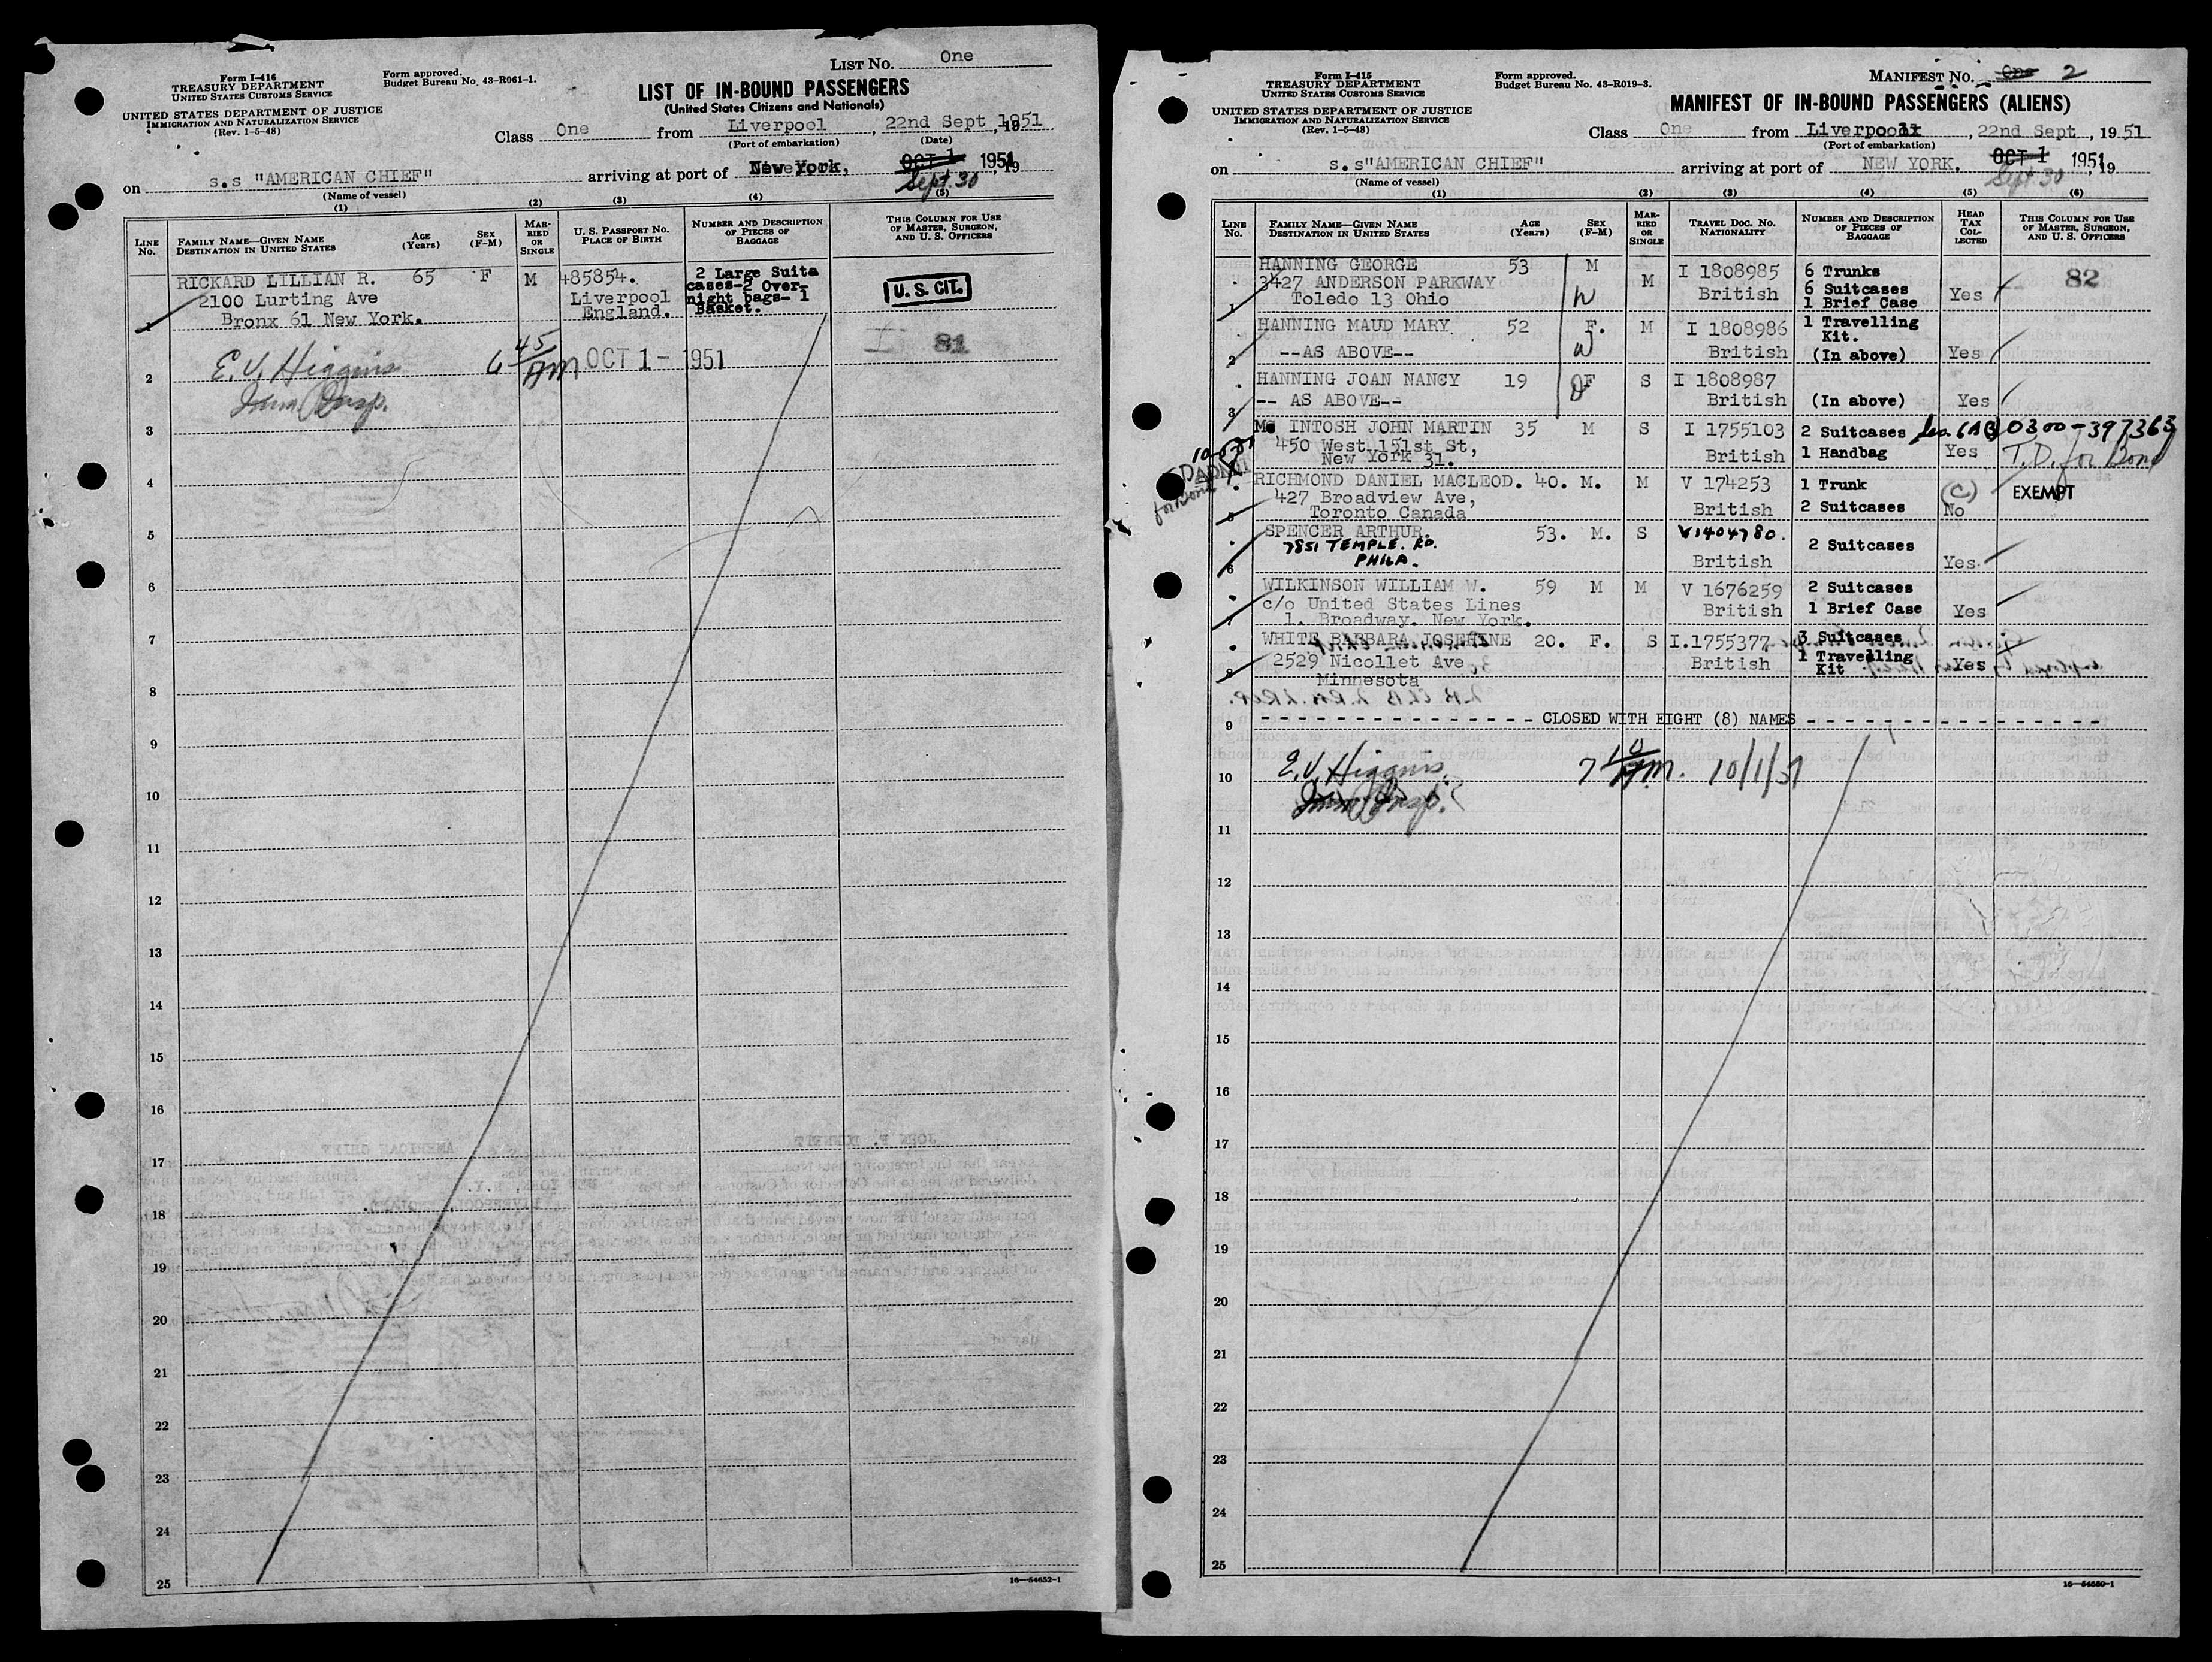 Form I-416
TREASURY DEPARTMENT
UNITED STATES CUSTOMS SERVICE
UNITED STATES DEPARTMENT OF JUSTICE
IMMIGRATION AND NATURALIZATION SERVICE
(Rev. 1-5-48)
Form approved.
Budget Bureau No. 43-R061-1.
LIST NO. One
LIST OF IN-BOUND PASSENGERS
(United States Citizens and Nationals)
Class One from Liverpool, 22nd Sept, 1951
(Port of embarkation) (Date)
on s.s "AMERICAN CHIEF" arriving at port of New York, OCT 1 1951, 19
Sept. 30
(Name of vessel)
(1) (2) (3) (4) (5)
LINE NO.
FAMILY NAME—GIVEN NAME
DESTINATION IN UNITED STATES
AGE (Years)
SEX (F-M)
MARRIED OR SINGLE
U. S. PASSPORT NO.
PLACE OF BIRTH
NUMBER AND DESCRIPTION OF PIECES OF BAGGAGE
THIS COLUMN FOR USE OF MASTER, SURGEON, AND U. S. OFFICERS
RICKARD LILLIAN R. 65 F M 485854. 2 Large Suita
2100 Lurting Ave Liverpool cases-2 Over-
Bronx 61 New York. England. night bags- 1
Basket.
U. S. CIT.
81
E. V. Higgins 6 45 AM OCT 1 - 1951
Imm. Insp.
2
3
4
5
6
7
8
9
10
11
12
13
14
15
16
17
18
19
20
21
22
23
24
25
16—54652-1
Form I-415
TREASURY DEPARTMENT
UNITED STATES CUSTOMS SERVICE
UNITED STATES DEPARTMENT OF JUSTICE
IMMIGRATION AND NATURALIZATION SERVICE
(Rev. 1-5-48)
Form approved.
Budget Bureau No. 43-R019-3.
MANIFEST NO. One 2
MANIFEST OF IN-BOUND PASSENGERS (ALIENS)
Class One from Liverpool, 22nd Sept, 1951
(Port of embarkation)
on s.s"AMERICAN CHIEF" arriving at port of NEW YORK. OCT 1 1951, 19
Sept 30
(Name of vessel)
(1) (2) (3) (4) (5) (6)
LINE NO.
FAMILY NAME—GIVEN NAME
DESTINATION IN UNITED STATES
AGE (Years)
SEX (F-M)
MARRIED OR SINGLE
TRAVEL DOC. NO.
NATIONALITY
NUMBER AND DESCRIPTION OF PIECES OF BAGGAGE
HEAD TAX COLLECTED
THIS COLUMN FOR USE OF MASTER, SURGEON, AND U. S. OFFICERS
1 HANNING GEORGE 53 M M I 1808985 6 Trunks 82
3427 ANDERSON PARKWAY British 6 Suitcases
Toledo 13 Ohio W 1 Brief Case Yes
2 HANNING MAUD MARY. 52 F. M I 1808986 1 Travelling Kit.
--AS ABOVE-- W British (In above) Yes
3 HANNING JOAN NANCY 19 F S I 1808987
-- AS ABOVE-- British (In above) Yes
4 Mc INTOSH JOHN MARTIN 35 M S I 1755103 2 Suitcases 0300-397363
450 West 151st St, British 1 Handbag Yes T.D. for Bond
New York 31.
for Bond
5 RICHMOND DANIEL MACLEOD. 40. M. M V 174253 1 Trunk (C) EXEMPT
427 Broadview Ave, British 2 Suitcases No
Toronto Canada
6 SPENCER ARTHUR. 53. M. S V1404780.
7851 TEMPLE. RD. 2 Suitcases
PHILA. British Yes
7 WILKINSON WILLIAM W. 59 M M V 1676259 2 Suitcases
c/o United States Lines British 1 Brief Case Yes
1. Broadway. New York.
8 WHITE BARBARA JOSEPHINE 20. F. S I.1755377 3 Suitcases
2529 Nicollet Ave British 1 Travelling Kit Yes
Minnesota
9 CLOSED WITH EIGHT (8) NAMES
10 E. V. Higgins 7 10 AM. 10/1/51
Imm. Insp.
11
12
13
14
15
16
17
18
19
20
21
22
23
24
25
16—54650-1